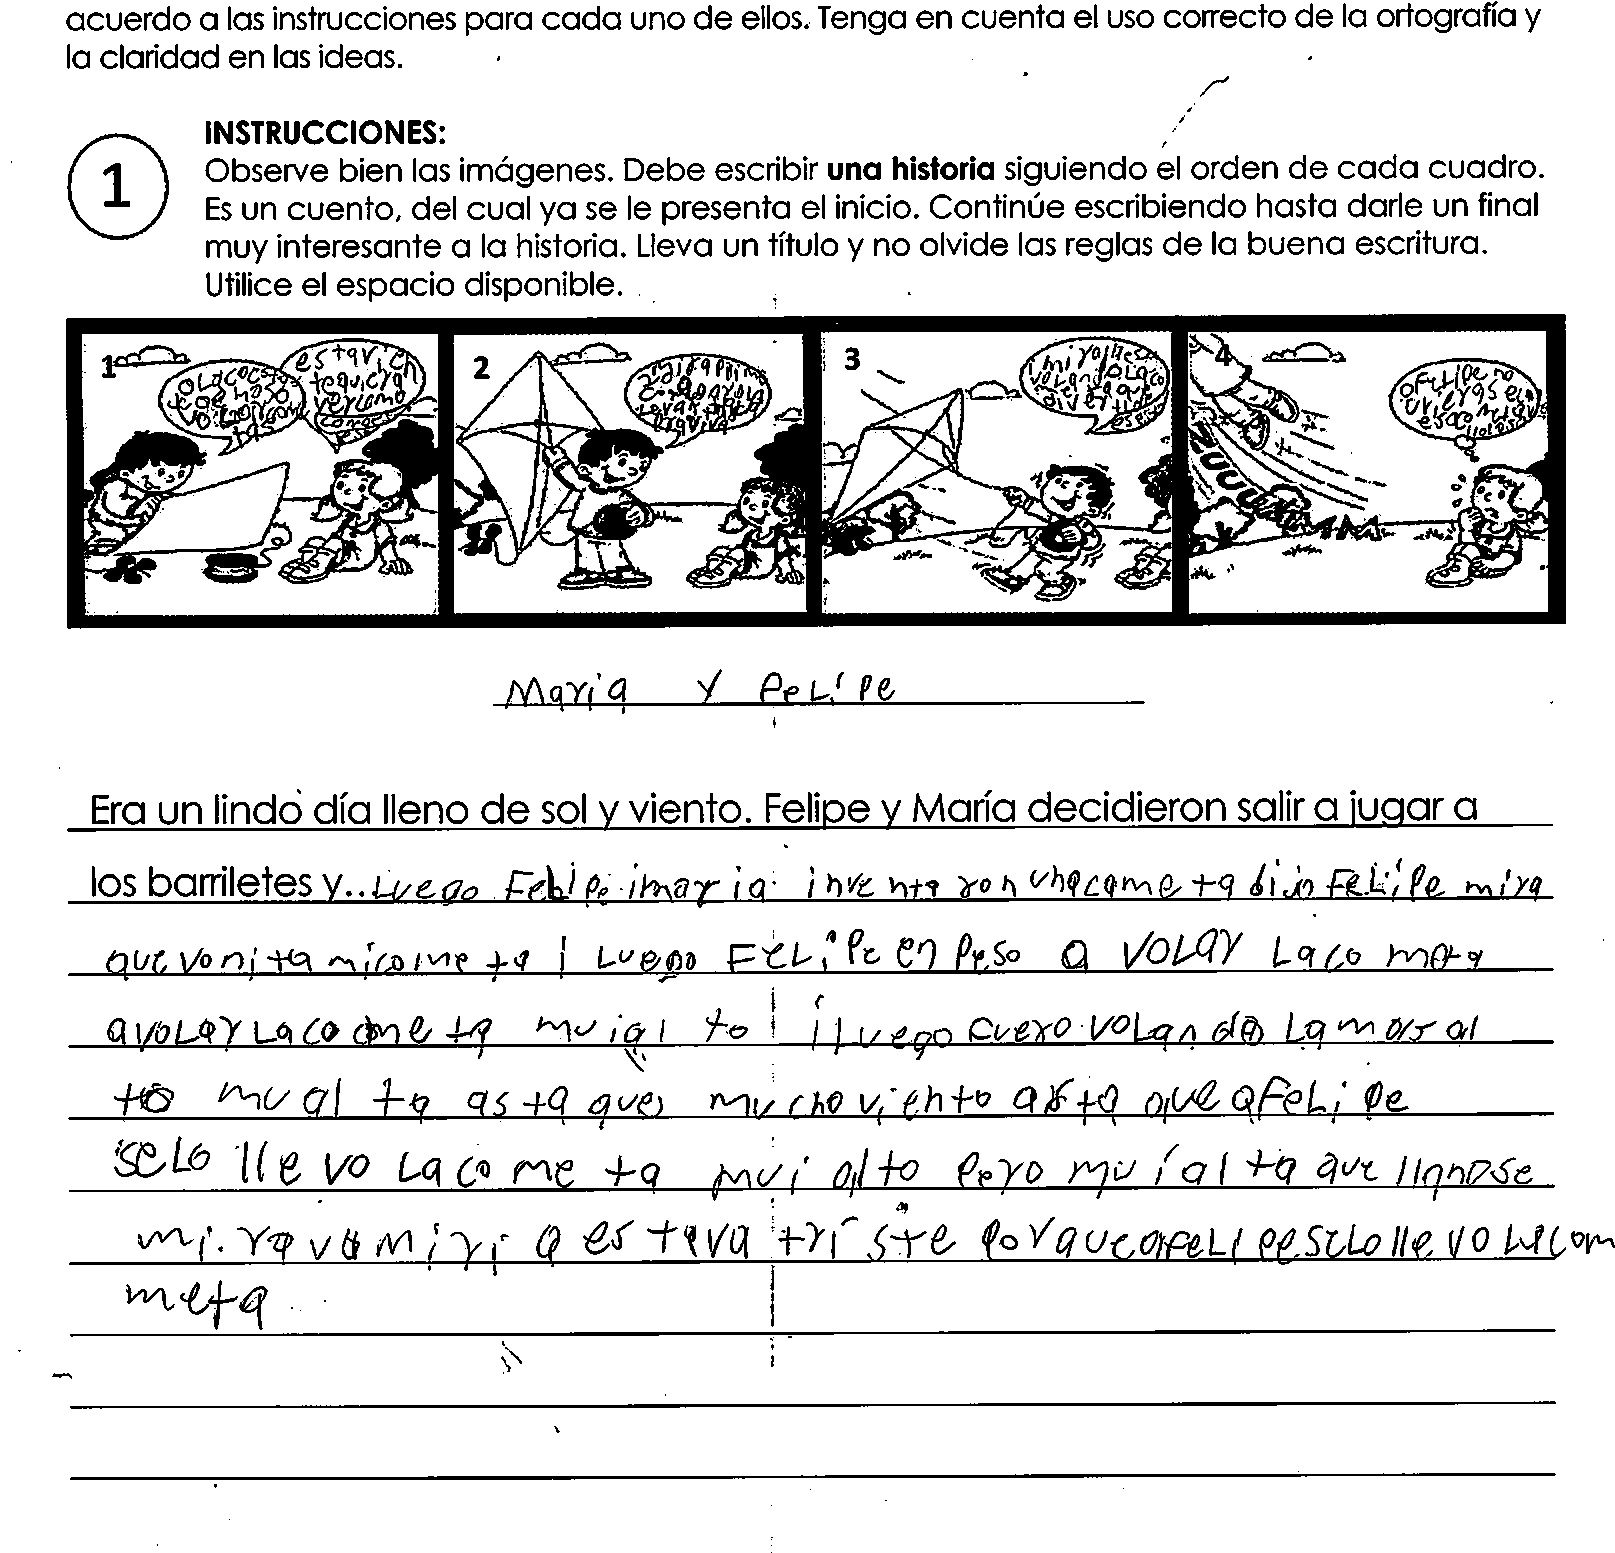 acuerdo a las instrucciones para cada uno de ellos. Tenga en cuenta el uso correcto de la ortografía y
la claridad en las ideas.
1
INSTRUCCIONES:
Observe bien las imágenes. Debe escribir una historia siguiendo el orden de cada cuadro.
Es un cuento, del cual ya se le presenta el inicio. Continúe escribiendo hasta darle un final
muy interesante a la historia. Lleva un título y no olvide las reglas de la buena escritura.
Utilice el espacio disponible.
1
estavien
tequieran
2
3
4
ofelipe no
ZUUUUMMM
Maria y FeLipe
Era un lindo día lleno de sol y viento. Felipe y María decidieron salir a jugar a
los barriletes y..Luego FeLipe imaria inventaron unacometa dijo FeLipe mira
que vonita micometa i Luego FeLipe enpeso a voLar Laco meta
avoLar Laco meta mui al to i Luego voLando La mas al
to mu al ta asta que mucho viento asta que aFeLipe
seLo llevo Laco me ta mui alto pero mu i al ta que llanose
mi.rava estava triste porque afeLipe seLo llevo Lacom
meta